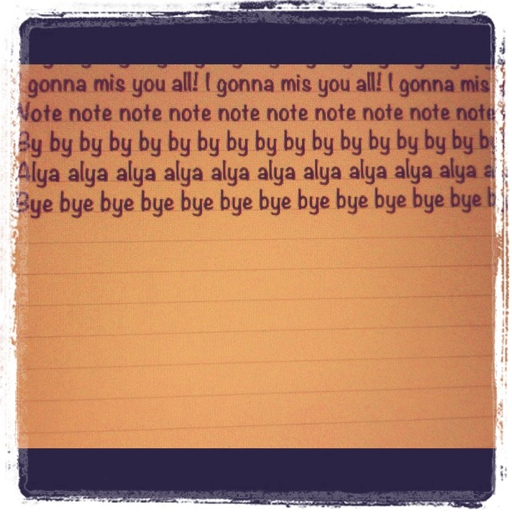 gonna mis you all! I gonna mis you all! I gonna mis
Note note note note note note note note note note
By by by by by by by by by by by by by by by by b
Alya alya alya alya alya alya alya alya alya alya a
Bye bye bye bye bye bye bye bye bye bye bye bye b